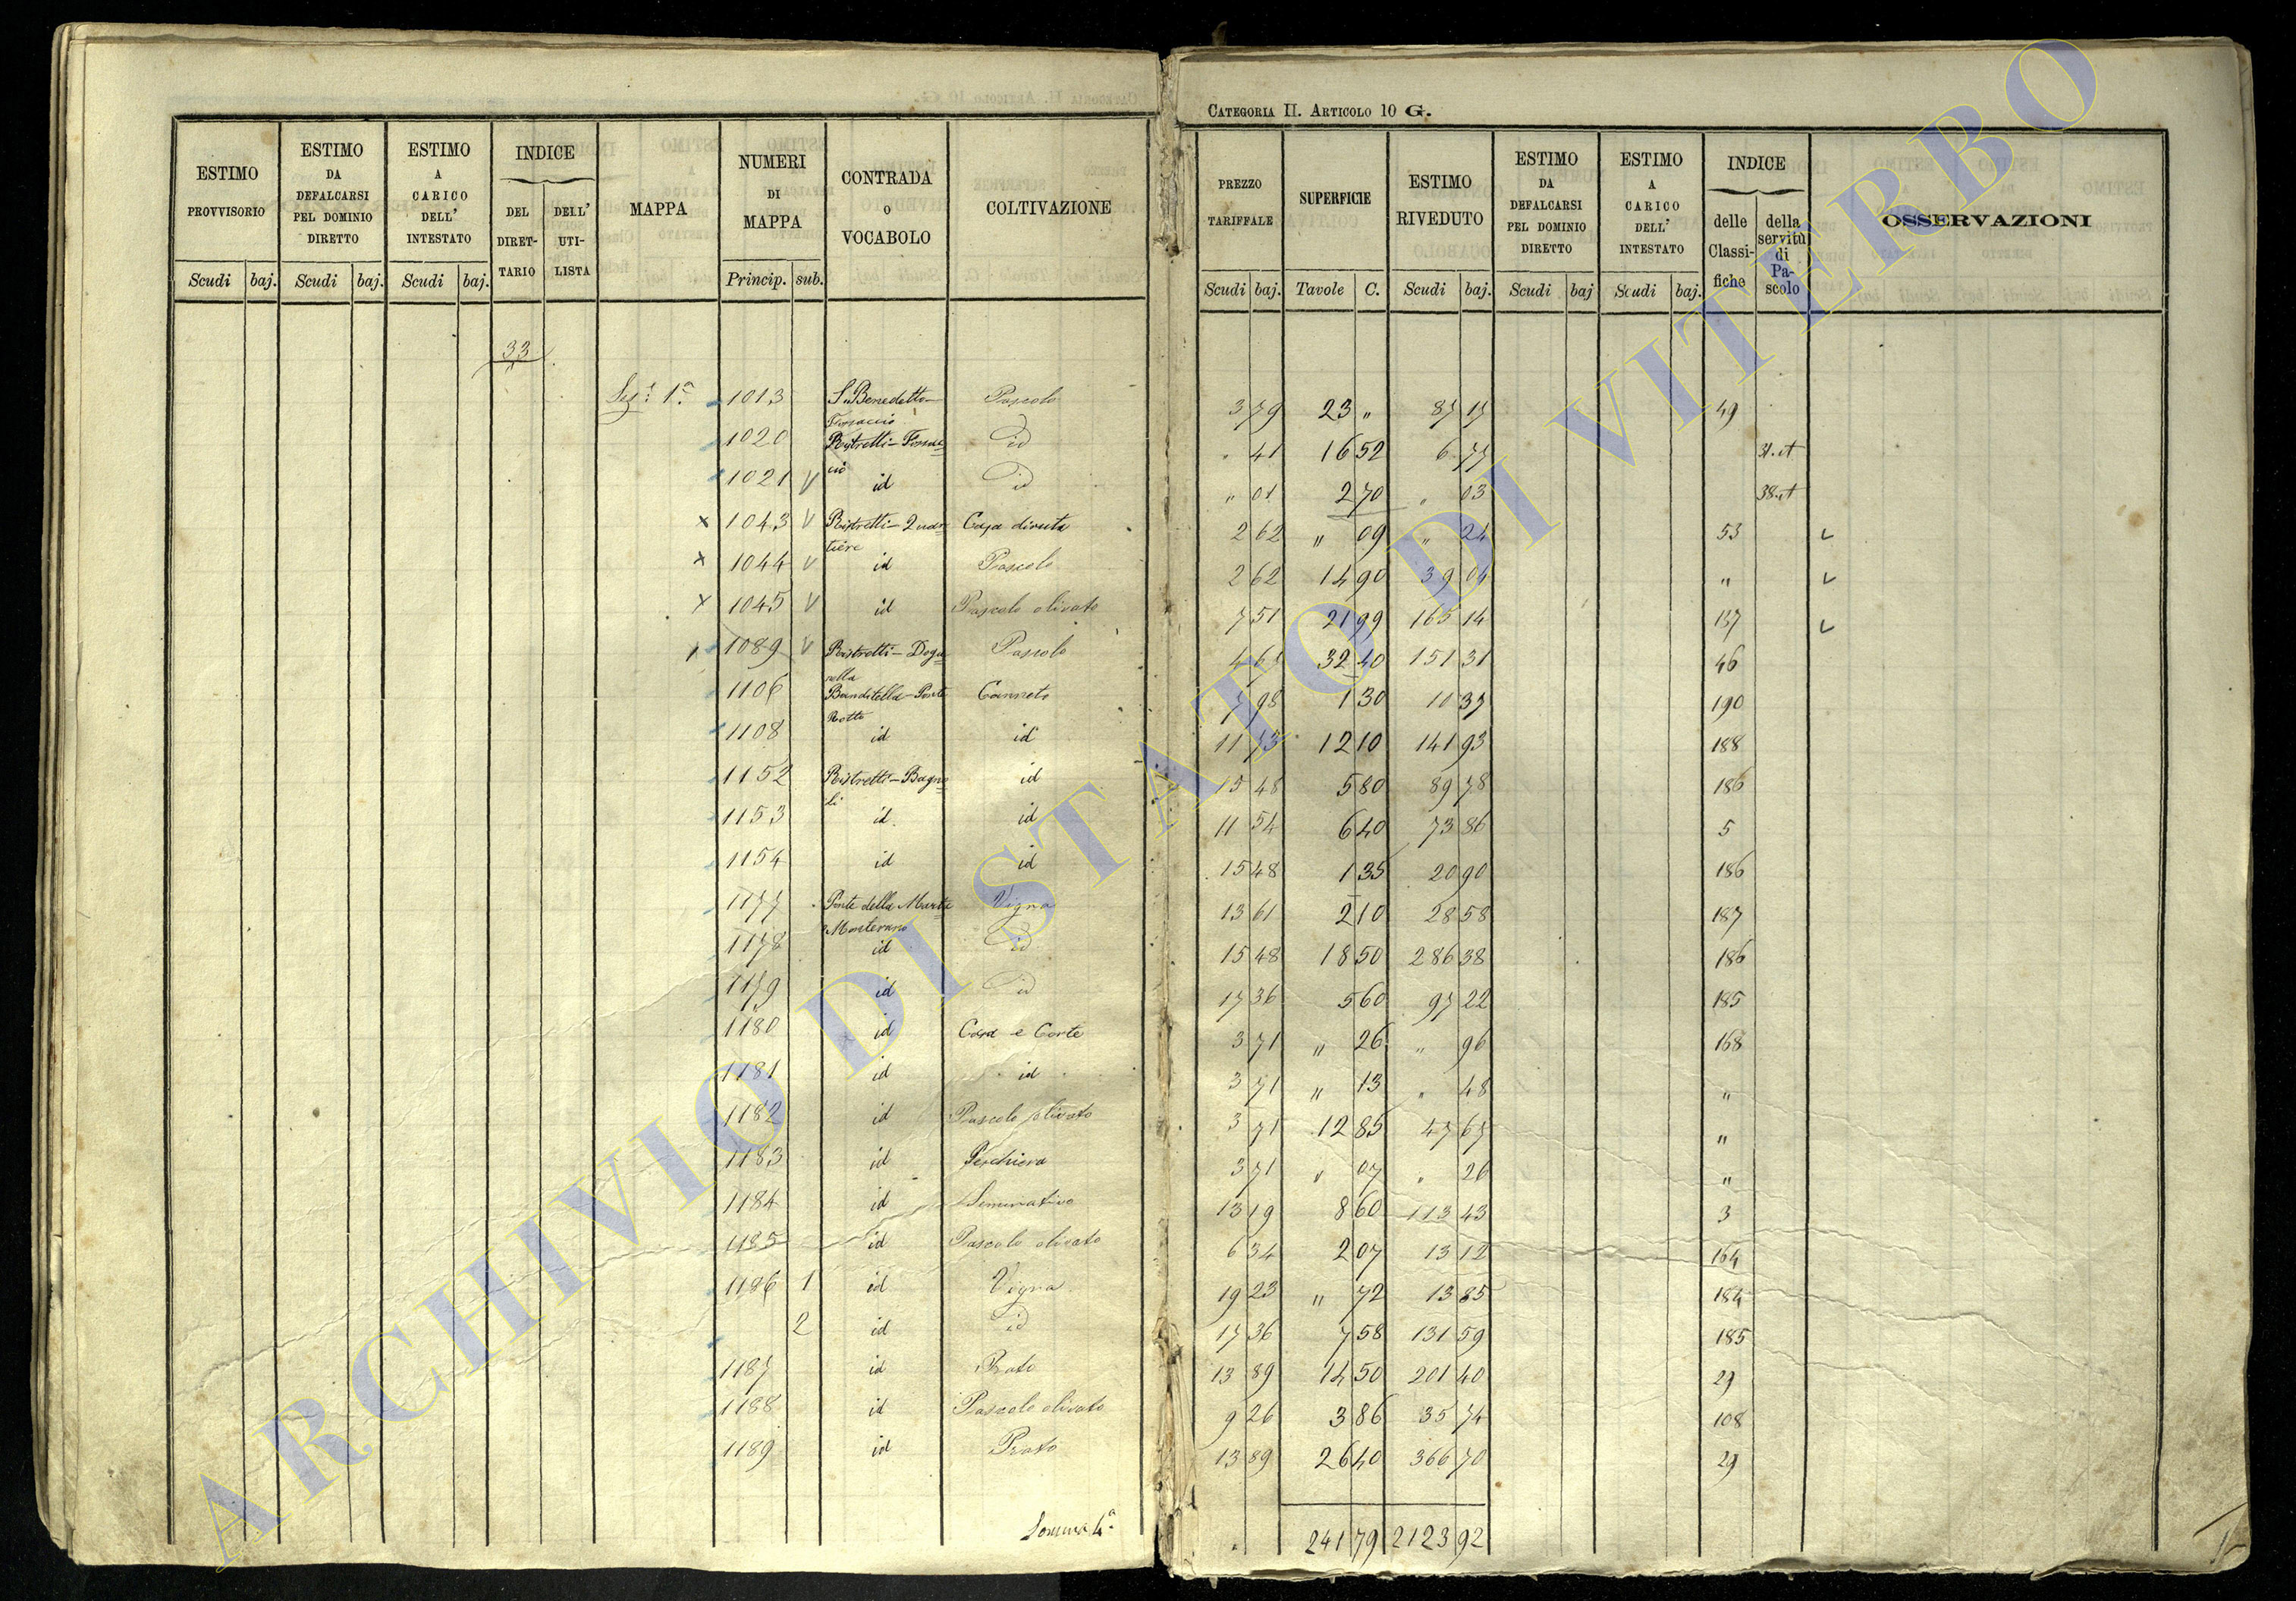 CATEGORIA II. ARTICOLO 10 G.
ESTIMO PROVVISORIO Scudi baj.
ESTIMO DA DEFALCARSI PEL DOMINIO DIRETTO Scudi baj.
ESTIMO A CARICO DELL' INTESTATO Scudi baj.
INDICE DEL DIRETTARIO DELL' UTILISTA
MAPPA
NUMERI DI MAPPA Princip. sub.
CONTRADA O VOCABOLO
COLTIVAZIONE
PREZZO TARIFFALE Scudi baj.
SUPERFICIE Tavole C.
ESTIMO RIVEDUTO Scudi baj.
ESTIMO DA DEFALCARSI PEL DOMINIO DIRETTO Scudi baj
ESTIMO A CARICO DELL' INTESTATO Scudi baj.
INDICE delle Classifiche della servitù di Pascolo
OSSERVAZIONI
33
1ª 1013 S. Benedetto Fossaccio Pascolo 3 79 23 " 87 17 49
1020 Ristretti - Fossaccio id 41 16 52 6 77 31
1021 V id id " 01 2 70 " 03 38
x 1043 V Ristretti - Quartiere Casa diruta 2 62 " 09 " 24 53 v
x 1044 V id Pascolo 2 62 14 90 39 04 " v
x 1045 V id Pascolo olivato 7 51 21 99 165 14 137 v
1089 V Ristretti - Doganella Pascolo 4 67 32 40 151 31 46
1106 Banditella - Ponte Rotto Canneto 7 98 1 30 10 37 190
1108 id id 11 73 12 10 141 93 188
1152 Ristretti - Bagnoli id 15 48 5 80 89 78 186
1153 id. id 11 54 6 40 73 86 5
1154 id id 15 48 1 35 20 90 186
1177 Ponte della Marta Monterano Vigna 13 61 2 10 28 58 187
1178 id id 15 48 18 50 286 38 186
1179 id id 17 36 5 60 97 22 185
1180 id Casa e Corte 3 71 " 26 " 96 168
1181 id id 3 71 " 13 " 48 "
1182 id Pascolo olivato 3 71 12 85 47 67 "
1183 id Peschiera 3 71 " 07 " 26 "
1184 id Seminativo 13 19 8 60 113 43 3
1185 id Pascolo olivato 6 34 2 07 13 12 164
1186 1 id Vigna 19 23 " 72 13 85 184
2 id id 17 36 7 58 131 59 185
1187 id Prato 13 89 14 50 201 40 29
1188 id Pascolo olivato 9 26 3 86 35 74 108
1189 id Prato 13 89 26 40 366 70 29
Somma 4ª 241 79 2123 92
ARCHIVIO DI STATO DI VITERBO